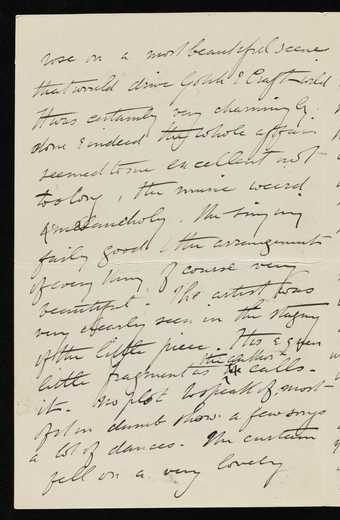 rose on a most beautiful scene
that would drive Gotch & Craft wild
It was certainly very charmingly
done & indeed the whole affair
seemed to me excellent not
too long, the music weird
& melancholy. The singing
fairly good & the arrangements
of everything of course very
beautiful. The artist was
very clearly seen in the staging
of the little piece. This
little fragment as the author calls
it. No plot to speak of, most
of it in dumb show: a few songs
a lot of dances. The curtain
fell on a very lovely